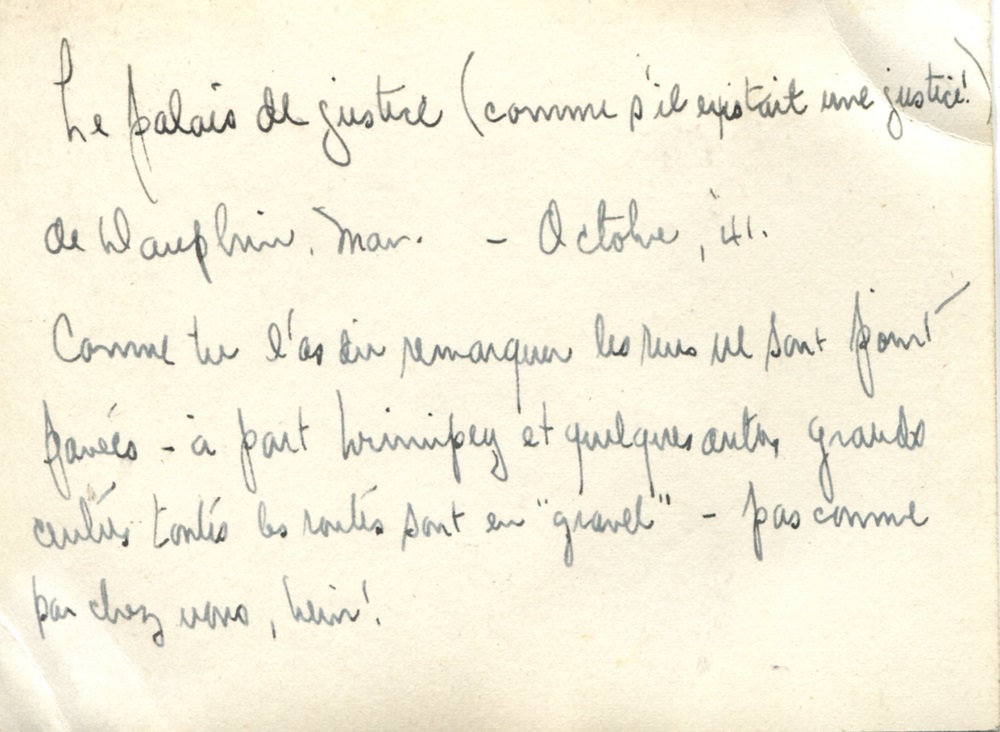 Le palais de justice (comme s'il existait une justice!)
de Dauphin, Man. - Octobre, '41.
Comme tu l'as dû remarquer les rues ne sont point
pavées - à part Winnipeg et quelques autres grands
centres toutes les routes sont en "gravel" - pas comme
par chez nous, hein!